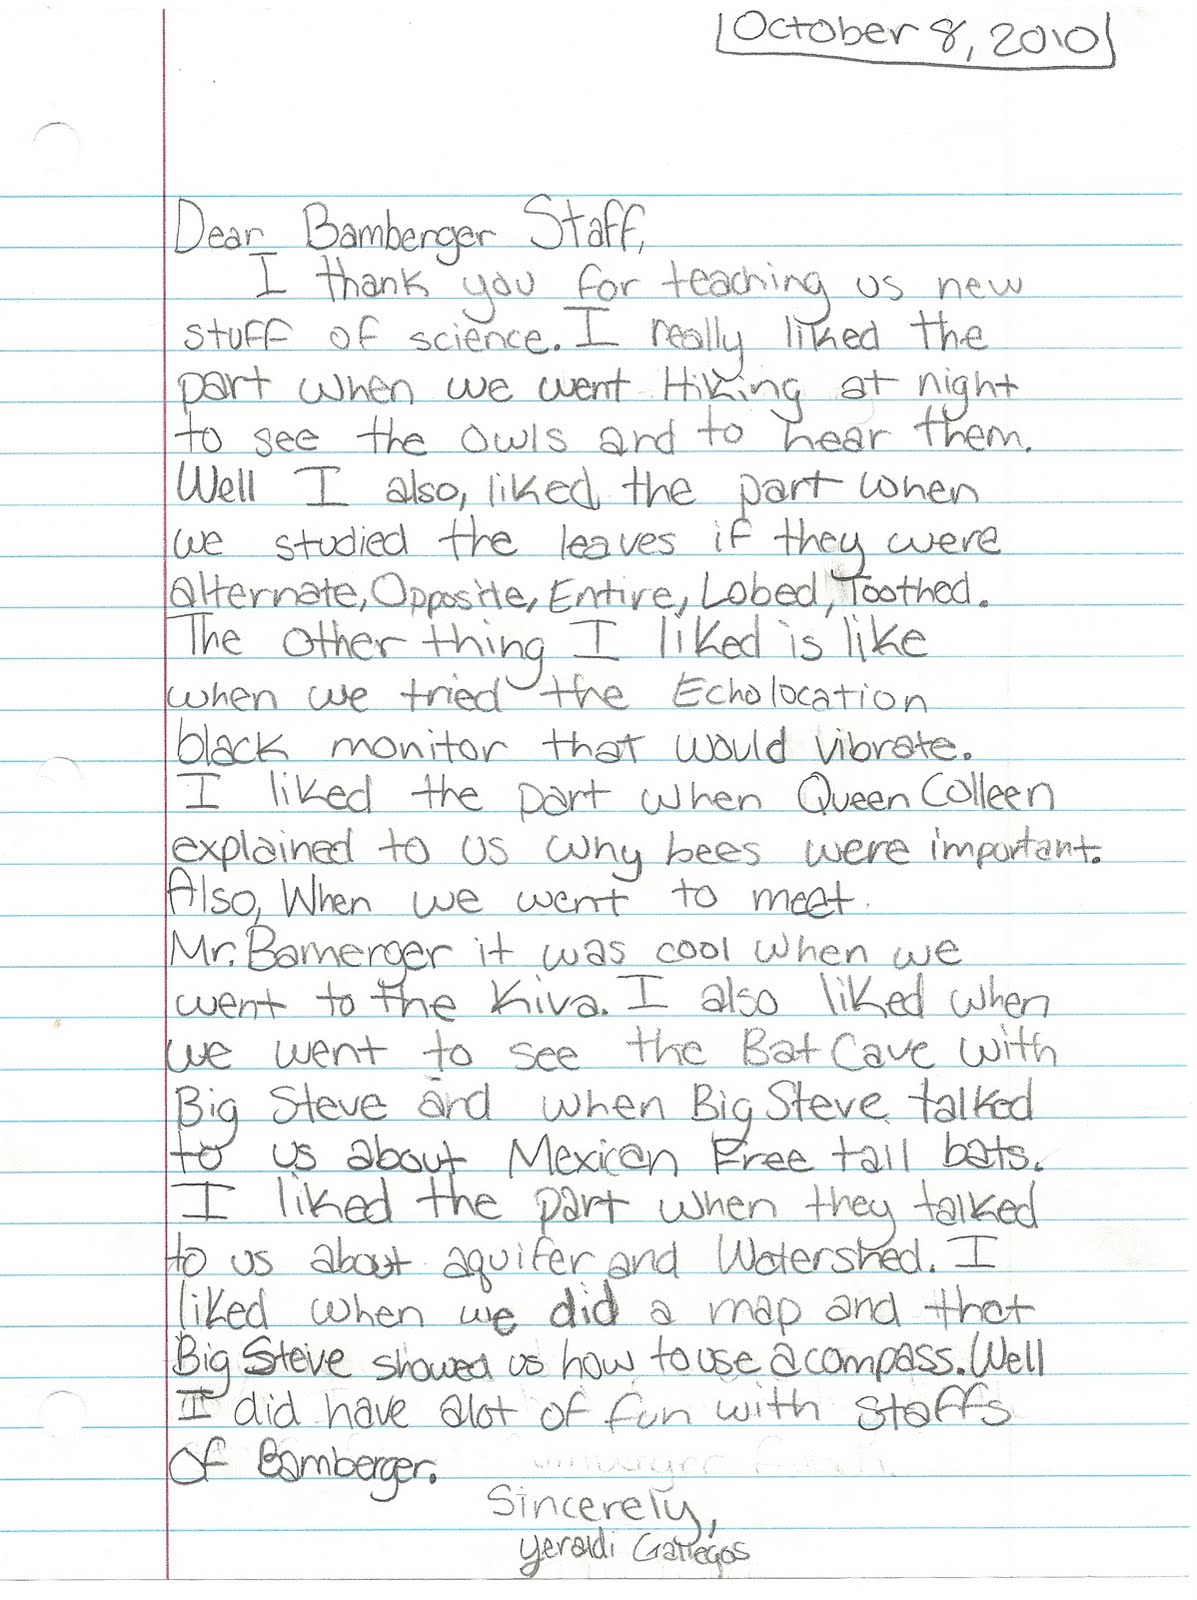 October 8, 2010
Dear Bamberger Staff,
I thank you for teaching us new
stuff of science. I really liked the
part when we went Hiking at night
to see the owls and to hear them.
Well I also, liked the part when
we studied the leaves if they were
alternate, Opposite, Entire, Lobed, Toothed.
The other thing I liked is like
when we tried the Echolocation
black monitor that would vibrate.
I liked the part when Queen Colleen
explained to us why bees were important.
Also, When we went to meet
Mr. Bamerger it was cool when we
went to the Kiva. I also liked when
we went to see the Bat Cave with
Big Steve and when Big Steve talked
to us about Mexican Free tail bats.
I liked the part when they talked
to us about aquifer and Watershed. I
liked when we did a map and that
Big Steve showed us how to use a compass. Well
I did have alot of fun with staffs
of Bamberger.
Sincerely,
Yeraldi Gallegos